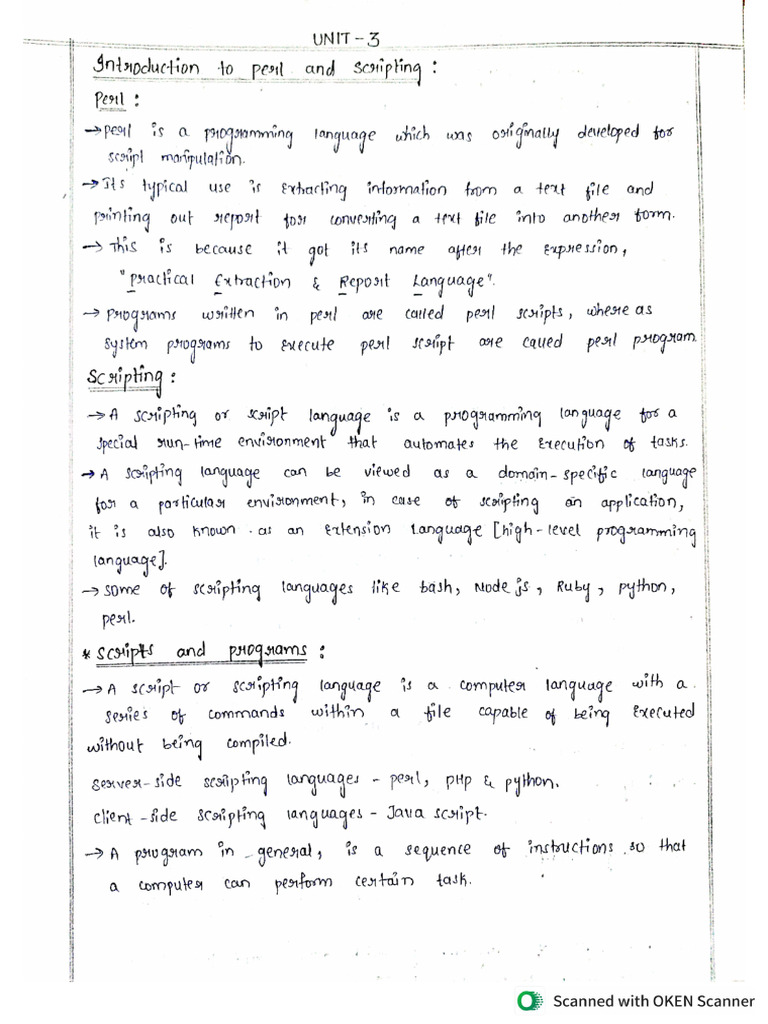 UNIT - 3
Introduction to perl and scripting :
Perl :
→ perl is a programming language which was originally developed for
script manipulation.
→ Its typical use is extracting information from a text file and
printing out report for converting a text file into another form.
→ This is because it got its name after the expression,
"Practical Extraction & Report Language".
→ programs written in perl are called perl scripts, where as
system programs to execute perl script are called perl program.
Scripting :
→ A scripting or script language is a programming language for a
special run-time environment that automates the execution of tasks.
→ A scripting language can be viewed as a domain-specific language
for a particular environment, in case of scripting an application,
it is also known as an extension language [high-level programming
language].
→ some of scripting languages like bash, Node js, Ruby, python,
perl.
* scripts and programs :
→ A script or scripting language is a computer language with a
series of commands within a file capable of being executed
without being compiled.
server-side scripting languages - perl, php & python.
client-side scripting languages - Java script.
→ A program in general, is a sequence of instructions so that
a computer can perform certain task.
Scanned with OKEN Scanner